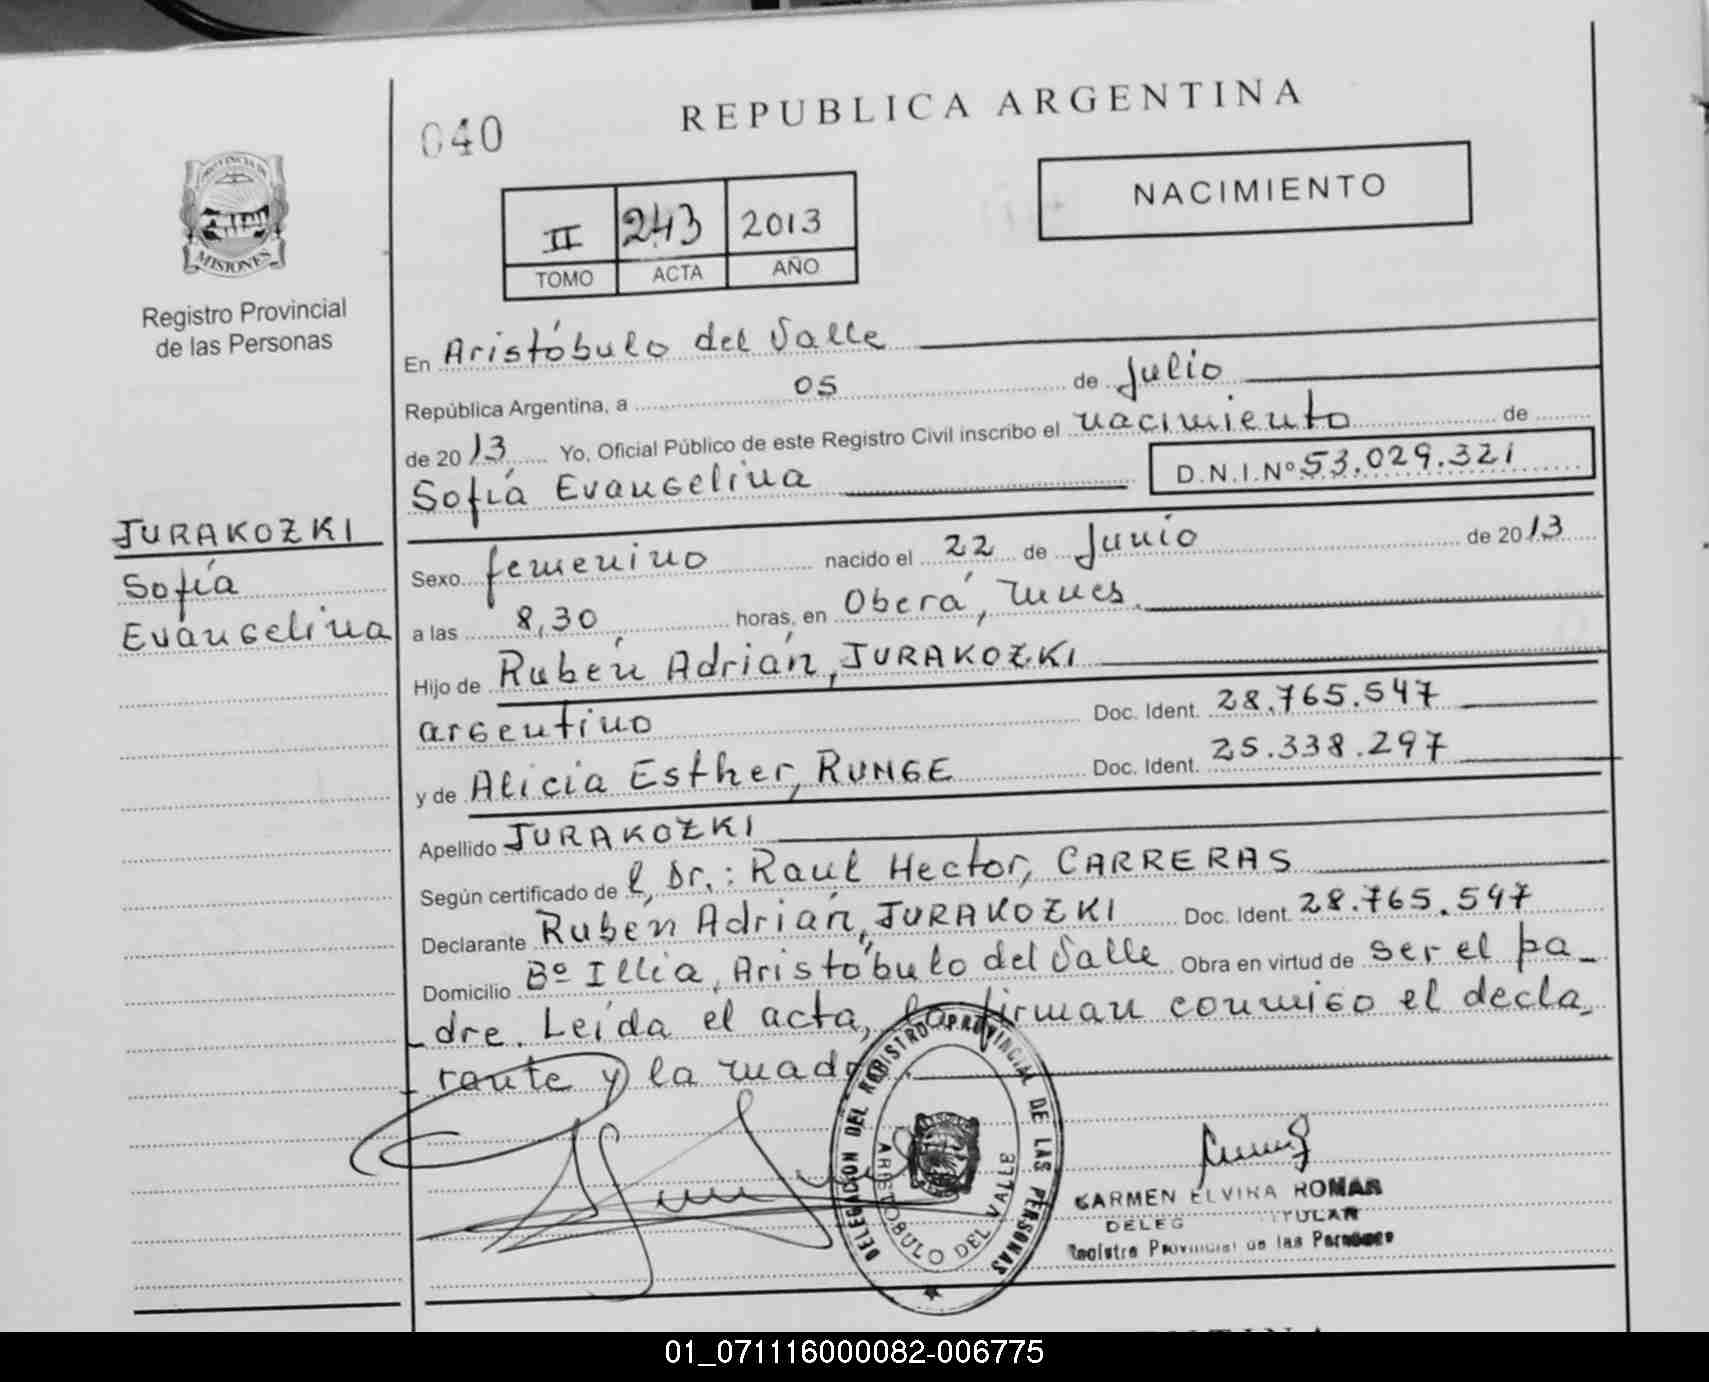 REPUBLICA ARGENTINA
040
NACIMIENTO
II 243 2013
TOMO ACTA AÑO
PROVINCIA DE
MISIONES
Registro Provincial
de las Personas
JURAKOZKI
Sofía
Evangelina
En Aristóbulo del Valle
República Argentina, a 05 de Julio
de 2013 Yo, Oficial Público de este Registro Civil inscribo el nacimiento de
Sofía Evangelina D.N.I.Nº 53.029.321
Sexo femenino nacido el 22 de Junio de 2013
a las 8,30 horas, en Oberá,
Hijo de Rubén Adrián, JURAKOZKI
argentino Doc. Ident. 28.765.547
y de Alicia Esther, RUNGE Doc. Ident. 25.338.297
Apellido JURAKOZKI
Según certificado de l Dr.: Raul Hector, CARRERAS
Declarante Rubén Adrián, JURAKOZKI Doc. Ident. 28.765.547
Domicilio Bº Illia, Aristóbulo del Valle Obra en virtud de ser el pa_
dre. Leída el acta, la firman conmigo el decla_
rante y la
DELEGACION DEL REGISTRO PROVINCIAL DE LAS PERSONAS
ARISTOBULO DEL VALLE
CARMEN ELVIRA ROMAN
DELEG TITULAR
Registro Provincial de las Personas
01_071116000082-006775